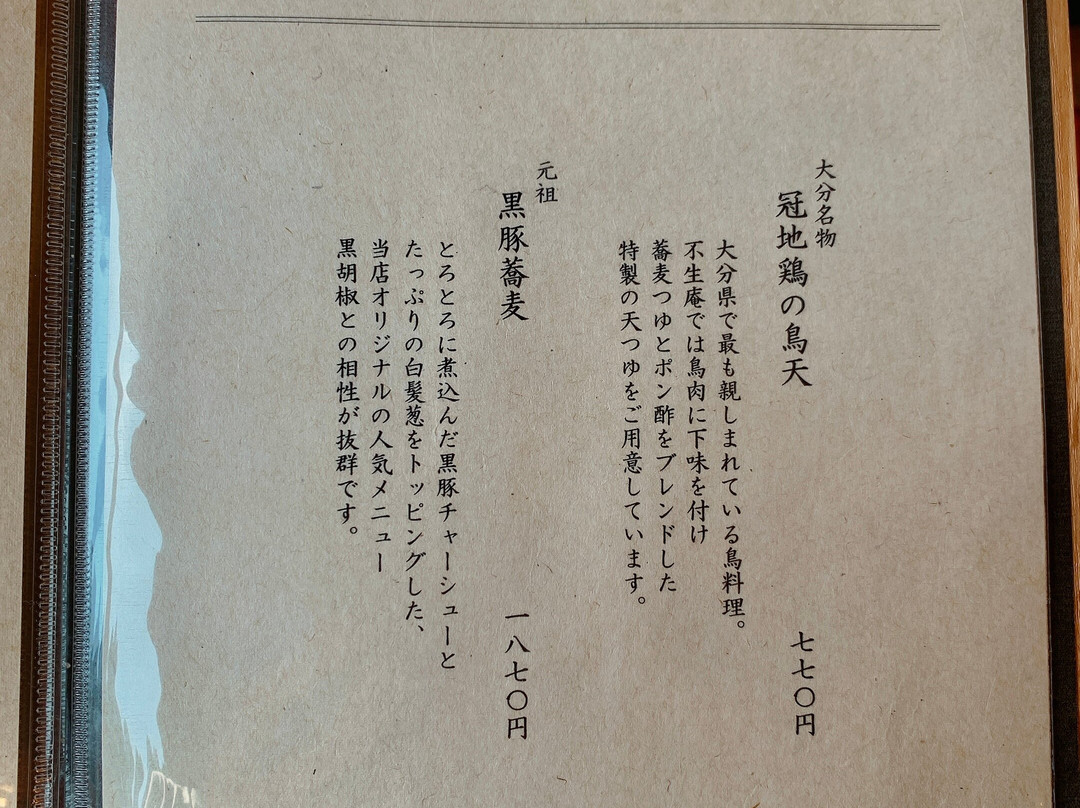 大分名物
冠地鶏の鳥天
大分県で最も親しまれている鳥料理。
不生庵では鳥肉に下味を付け
蕎麦つゆとポン酢をブレンドした
特製の天つゆをご用意しています。
七七〇円
元祖
黒豚蕎麦
とろとろに煮込んだ黒豚チャーシューと
たっぷりの白髪葱をトッピングした、
当店オリジナルの人気メニュー
黒胡椒との相性が抜群です。
一八七〇円